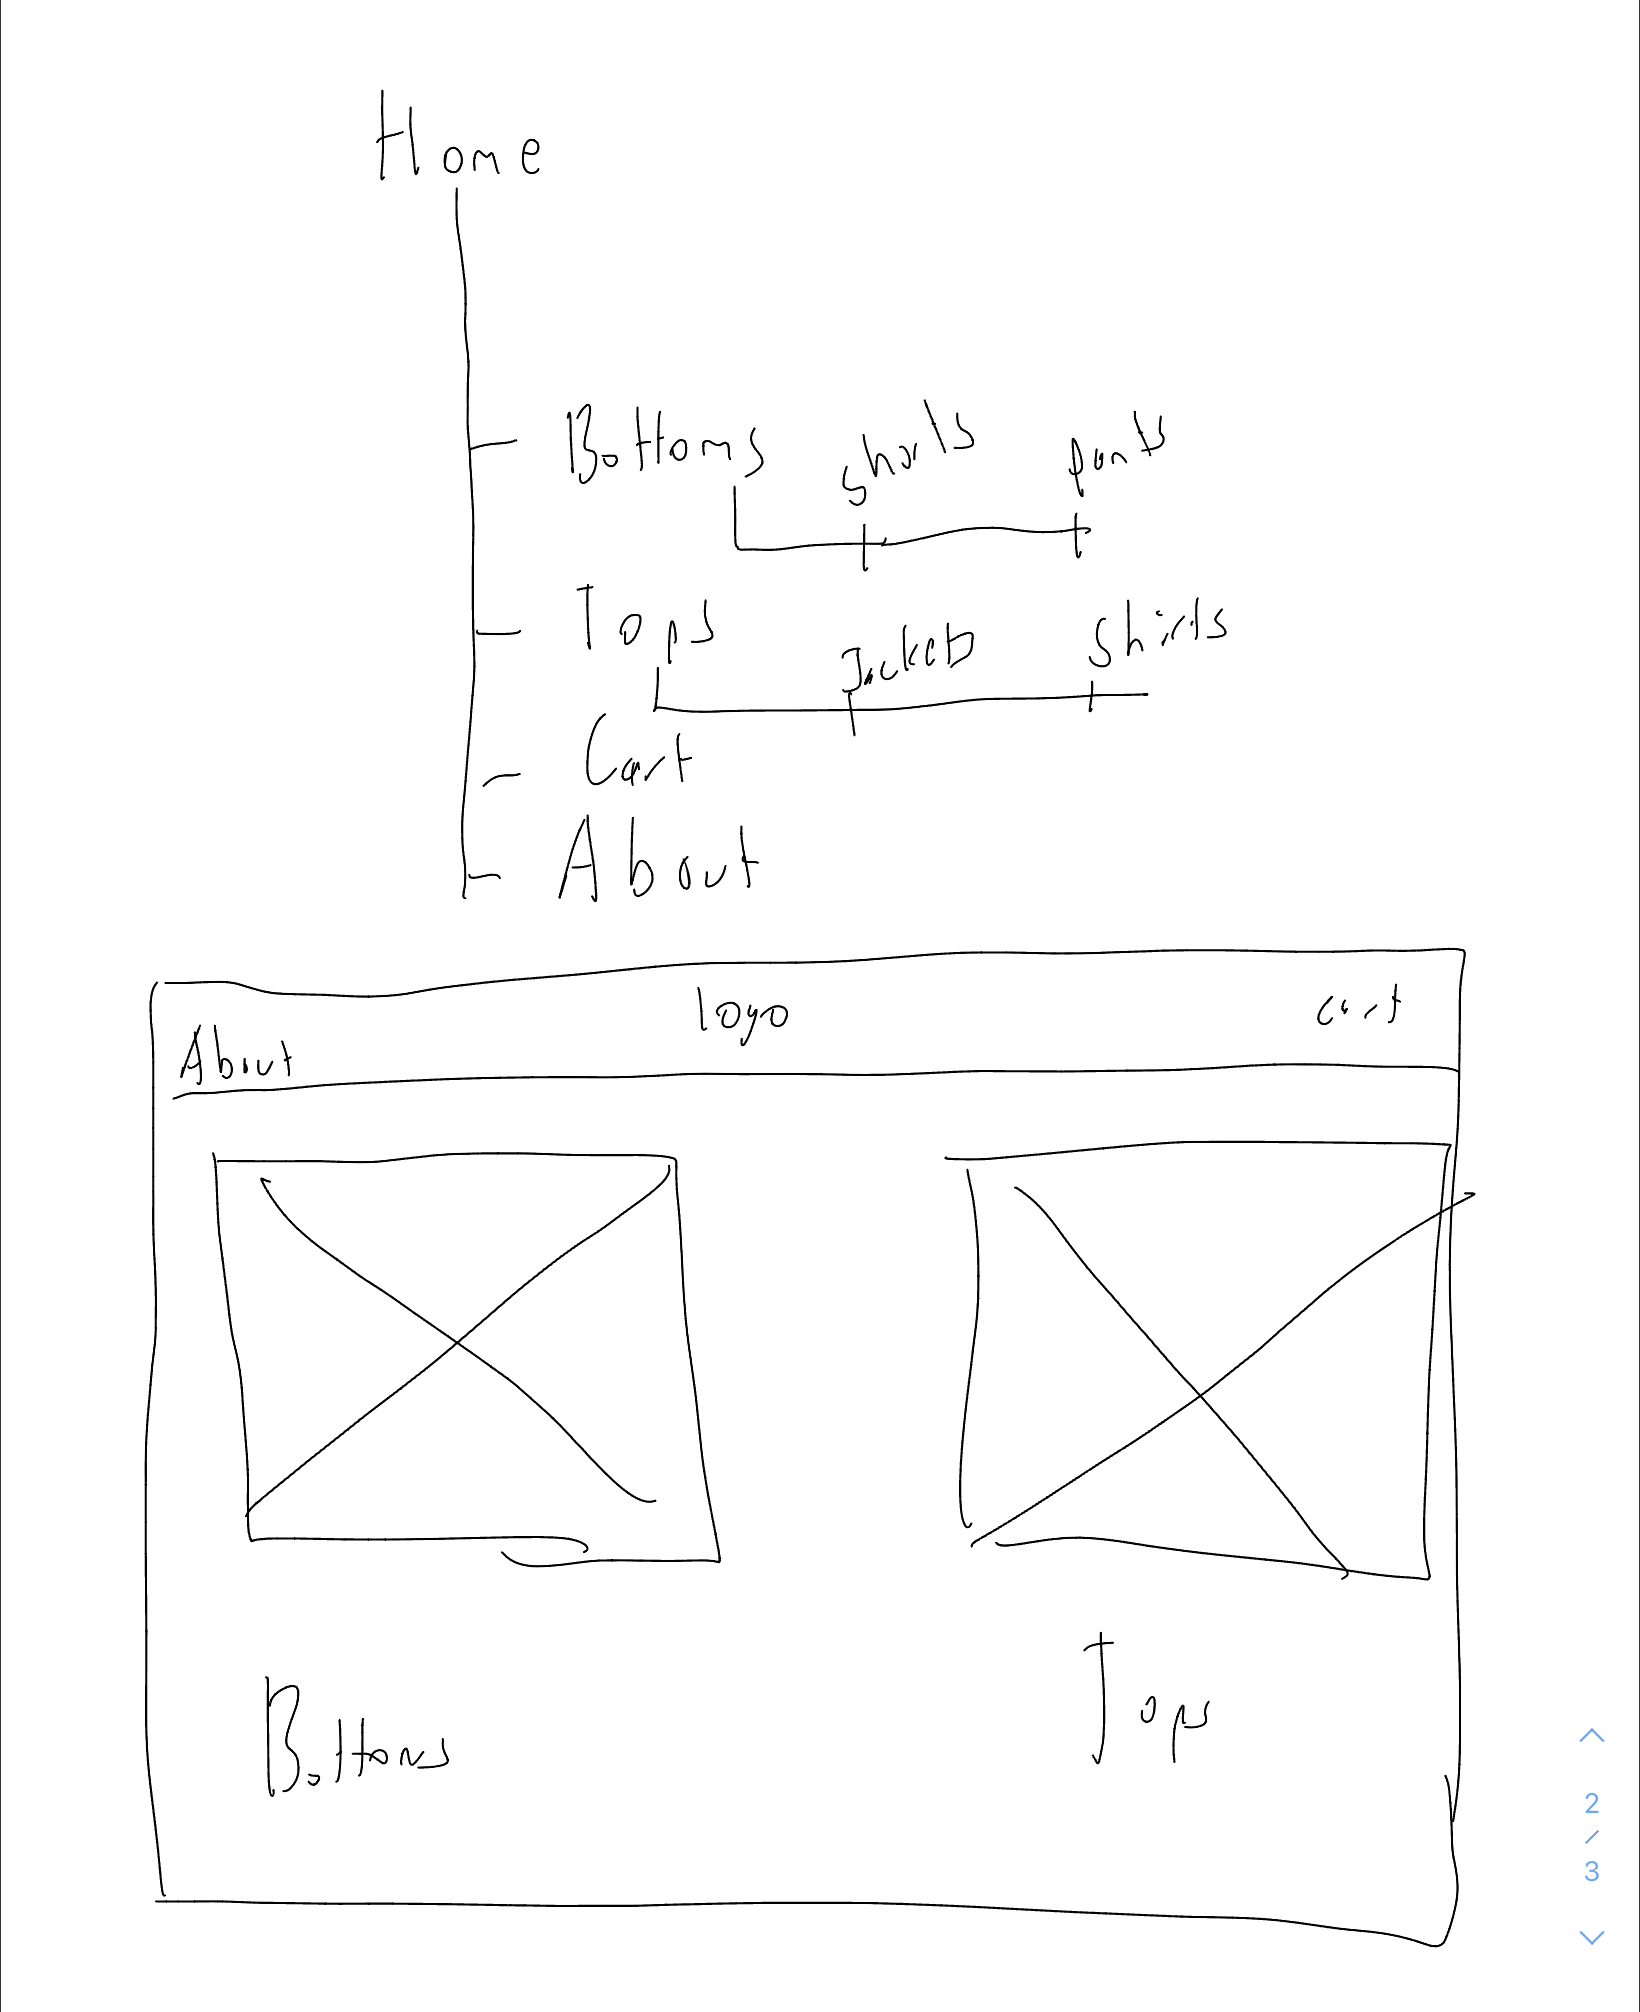 Home
Bottoms shorts pants
Tops Jackets shirts
Cart
About
logo cart
About
Bottoms Tops
2
/
3